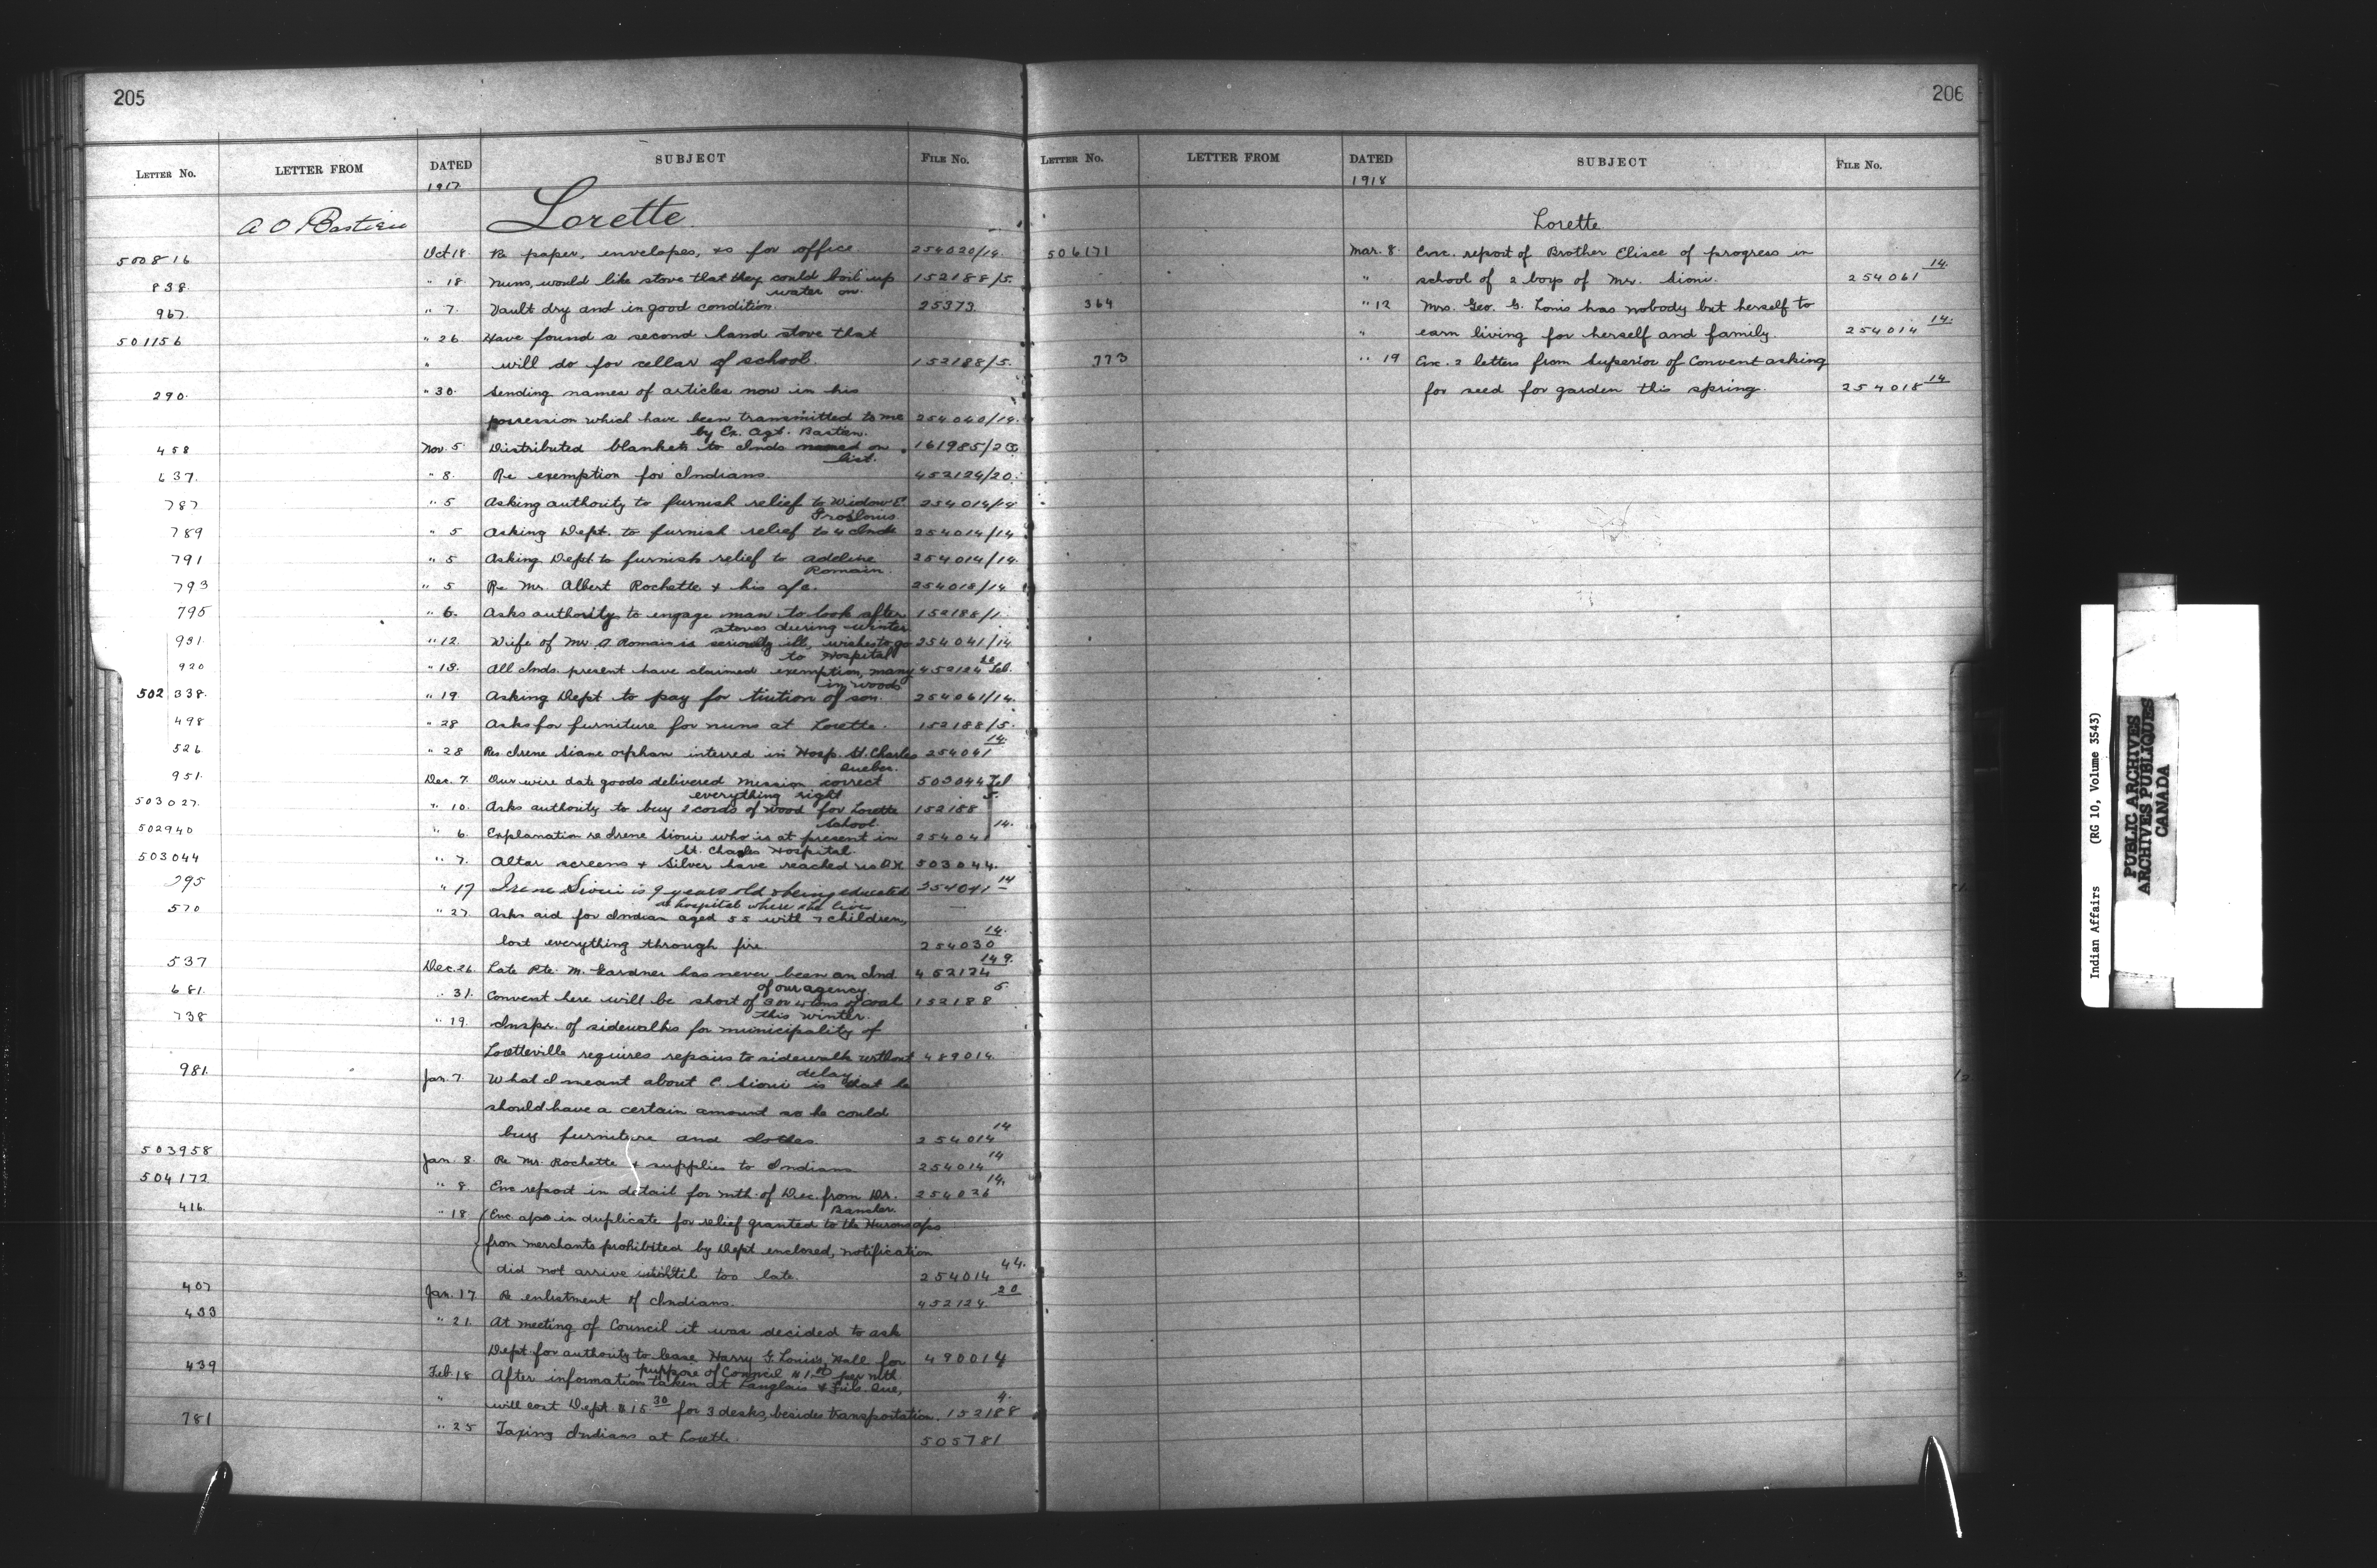 205
LETTER No. LETTER FROM DATED SUBJECT FILE No.
1917
A O Bastien Lorette
500816 Oct 18. Re paper, envelopes, &c for office 254020/14.
838. " 18. Nuns, would like stove that they could boil up 152188/5.
water on.
967. " 7. Vault dry and in good condition. 25373.
501156 " 26. Have found a second hand stove that
" will do for cellar of school. 152188/5.
290. " 30. Sending names of articles now in his
possession which have been transmitted to me 254040/14.
by Ex. Agt. Bastien.
458 Nov. 5. Distributed blankets to Inds named on 161985/2
list.
637. " 8. Re exemption for Indians 452124/20.
787 " 5 Asking authority to furnish relief to Widow E. 254014/14
Groslouis
789 " 5 Asking Dept. to furnish relief to 4 Inds 254014/14
791 " 5 Asking Dept to furnish relief to Adeline 254014/14.
Romain.
793 " 5 Re Mr. Albert Rochette & his a/c. 254018/14
795 " 6. Asks authority to engage man to look after 152188/1.
stoves during winter
931. " 12. Wife of Mr. A. Romain is seriously ill, wishes to go 254041/14.
to Hospital
920 " 13. All Inds. present have claimed exemption, many 452124 20 Tel.
in woods
502 338. " 19. Asking Dept to pay for tiution of son. 254061/14.
498 " 28 Asks for furniture for nuns at Lorette. 152188/5.
526 " 28 Re Irene Siane orphan interred in Hosp. St. Charles 254041 14.
Quebec.
951. Dec. 7. Our wire date goods delivered Mission correct 503044 Tel
everything right
503027. " 10. Asks authority to buy 2 cords of wood for Lorette 152188 5.
School.
502940 " 6. Explanation re Irene Sioui who is at present in 254041 14.
St. Charles Hospital.
503044 " 7. Altar screens & Silver have reached us O.K. 503044.
295 " 17 Irene Sioui is 9 years old & being educated 254041 14
at hospital where she lives
570 " 27. Asks aid for Indian aged 55 with 7 children,
lost everything through fire 254030 14.
537 Dec. 26. Late Pte. M. Gardner has never been an Ind. 452124 149.
of our agency
681. " 31. Convent here will be short of 3 or 4 tons of coal 152188 5
this winter.
738 " 19. Inspr. of sidewalks for municipality of
Loretteville requires repairs to sidewalk without 489014.
delay.
981. Jan. 7. What I meant about C. Sioui is that he
should have a certain amount so he could
buy furniture and clothes 254014 14
503958 Jan. 8. Re Mr. Rochette & supplies to Indians 254014 14
504172 " 8. Enc report in detail for mth. of Dec. from Dr. 254026 14.
416. " 18 Enc. a/cs in duplicate for relief granted to the Hurons a/cs
from merchants prohibited by Dept enclosed, notification
did not arrive until too late. 254014 44.
407 Jan. 17 Re enlistment of Indians. 452124 20
433 " 21. At meeting of Council it was decided to ask
Dept for authority to lease Harry G. Louis's Hall for 490014
purpose of Council $1.00 per mth
439 Feb. 18 After information taken at Langlais & Fils. Que,
" will cost Dept. $15 30 for 3 desks, besides transportation. 152188 4.
781 " 25 Taxing Indians at Lorette. 505781
206
LETTER No. LETTER FROM DATED SUBJECT FILE No.
1918
Lorette
506171 Mar. 8. Enc. report of Brother Elisee of progress in
" school of 2 boys of Mr. Sioui. 254061 14.
364 " 12 Mrs. Geo. G. Louis has nobody but herself to
" earn living for herself and family. 254014 14.
773 " 19 Enc. 2 letters from Superior of Convent asking
for seed for garden this spring. 254018 14
Indian Affairs (RG 10, Volume 3543)
PUBLIC ARCHIVES
ARCHIVES PUBLIQUES
CANADA